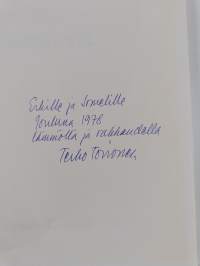 Erkille ja Irmelille
Jouluna 1978
lämmöllä ja rakkaudella
Terho Toivonen